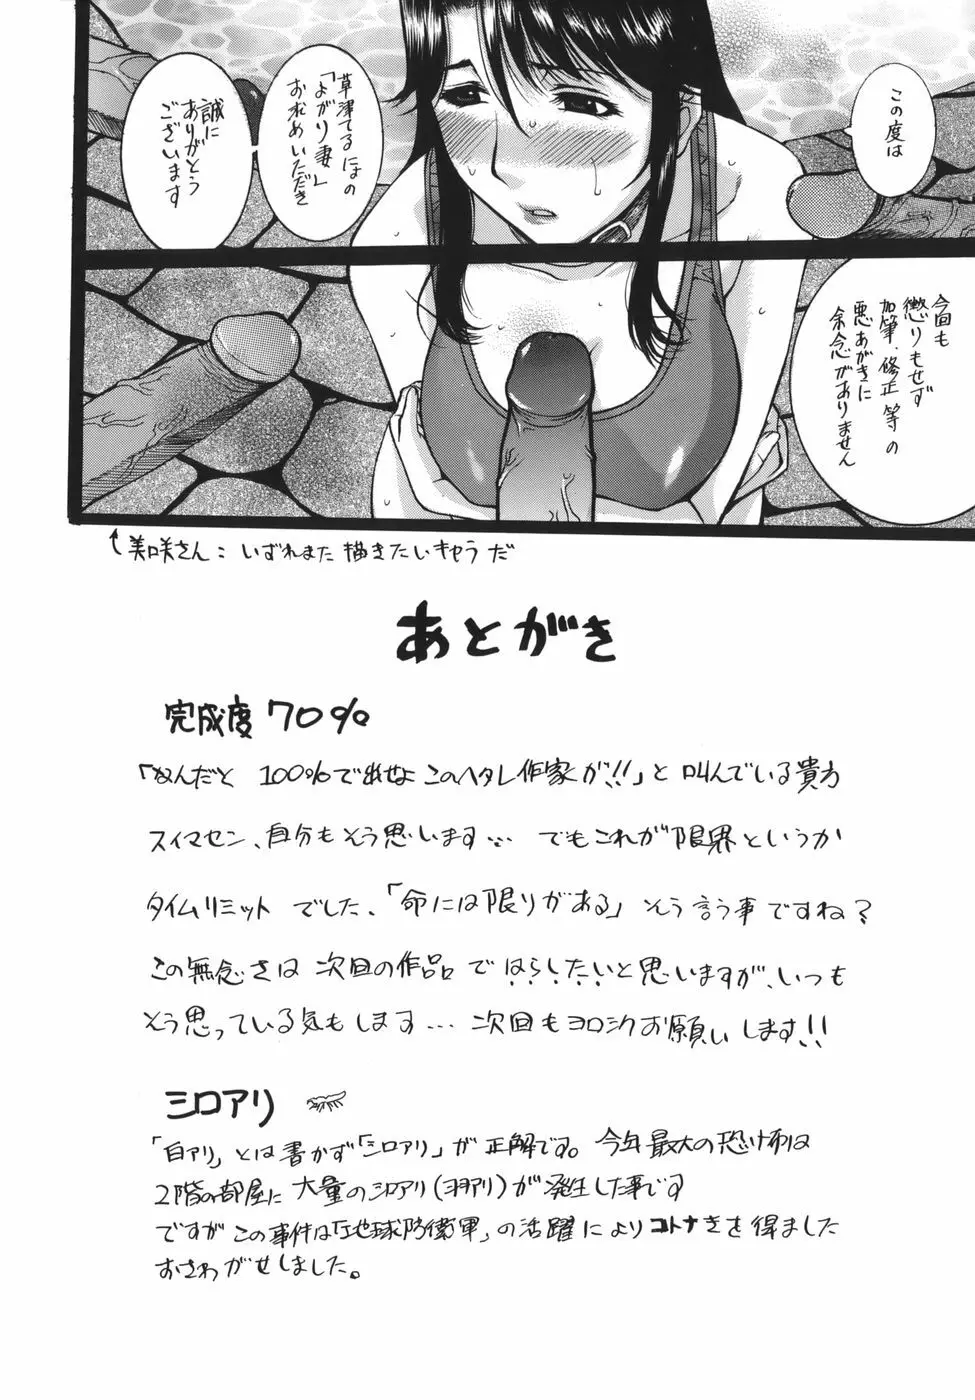 この度は
草津てるにょの
「よがり妻」
お求めいただき
誠に
ありがとう
ございます
今回も
懲りもせず
加筆、修正等の
悪あがきに
余念がありません
美咲さん：いずれまた描きたいキャラだ
あとがき
完成度70%
「なんだと 100%で出せよこのヘタレ作家が!!」と叫んでいる貴方
スイマセン、自分もそう思います… でもこれが限界というか
タイムリミットでした、「命には限りがある」そう言う事ですね?
この無念さは次回の作品ではらしたいと思いますが、いつも
そう思っている気もします… 次回もヨロシクお願いします!!
シロアリ
「白アリ」とは書かず「シロアリ」が正解です。今年最大の恐怖は
2階の部屋に大量のシロアリ(羽アリ)が発生した事です
ですがこの事件は「地球防衛軍」の活躍によりコトナきを得ました
おさわがせしました。